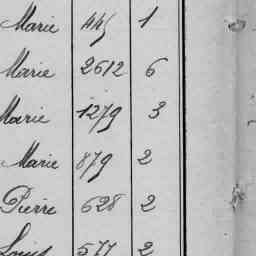 Marie 445 1
Marie 2612 6
Marie 1279 3
Marie 879 2
Pierre 628 2
Louis 577 2